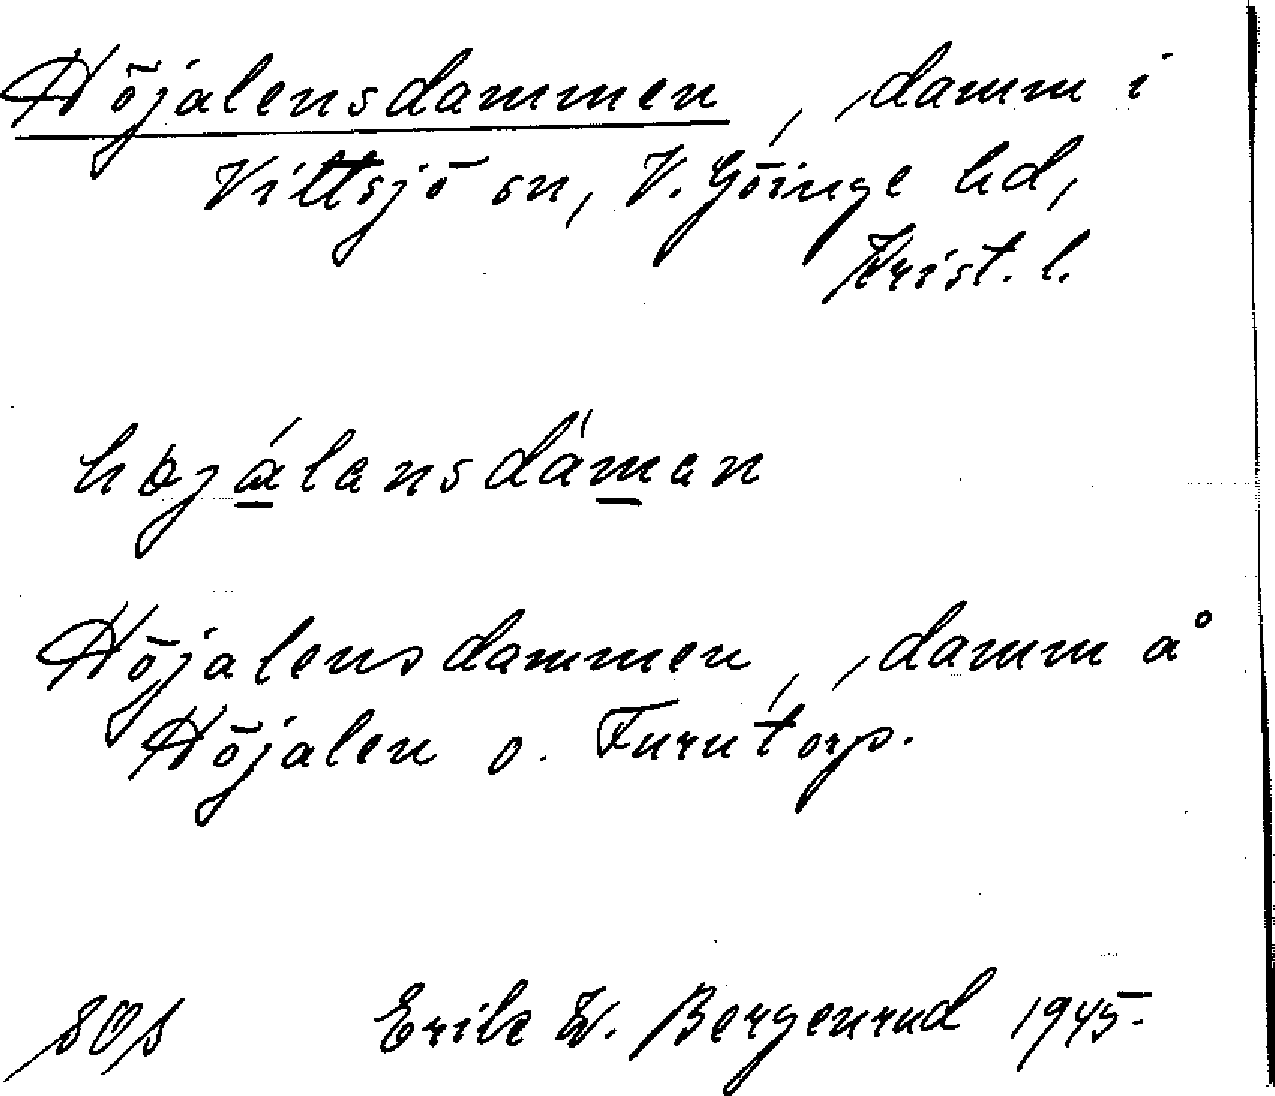 Höjalensdammen, damm i
Vittsjö sn, V. Göinge hd,
Krist. l.
højálensdámen
Höjalensdammen, damm å
Höjalen o. Furutorp.
Erik W. Bergenrud 1945.